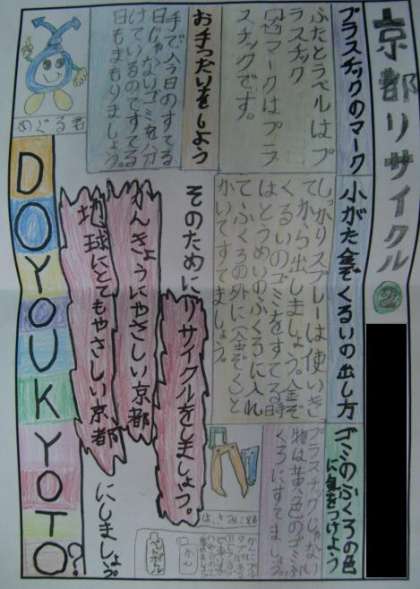 京都リサイクル②
プラスチックのマーク
ふたとラベルはプ
ラスチック
マークはプラ
スチックです。
小がた金ぞくるいの出し方
しっかりスプレーは使いき
てから出しましょう。金ぞ
くるいのゴミをすてる時
はとうめいのふくろに入れ
てふくろの外に(金ぞく)と
かいてすてましょう。
ゴミのふくろの色
に気をつけよう
プラスチックじゃない
物は黄色のゴミぶ
くろにすてましょう。
お手つだいをしよう
手で今日のすてる
日じゃないゴミを
けているのですてる
日もまもりましょう。
めぐる君
そのためにリサイクルをしましょう。
かんきょうにやさしい京都
地球にとてもやさしい京都
にしましょう。
DO YOU KYOTO?